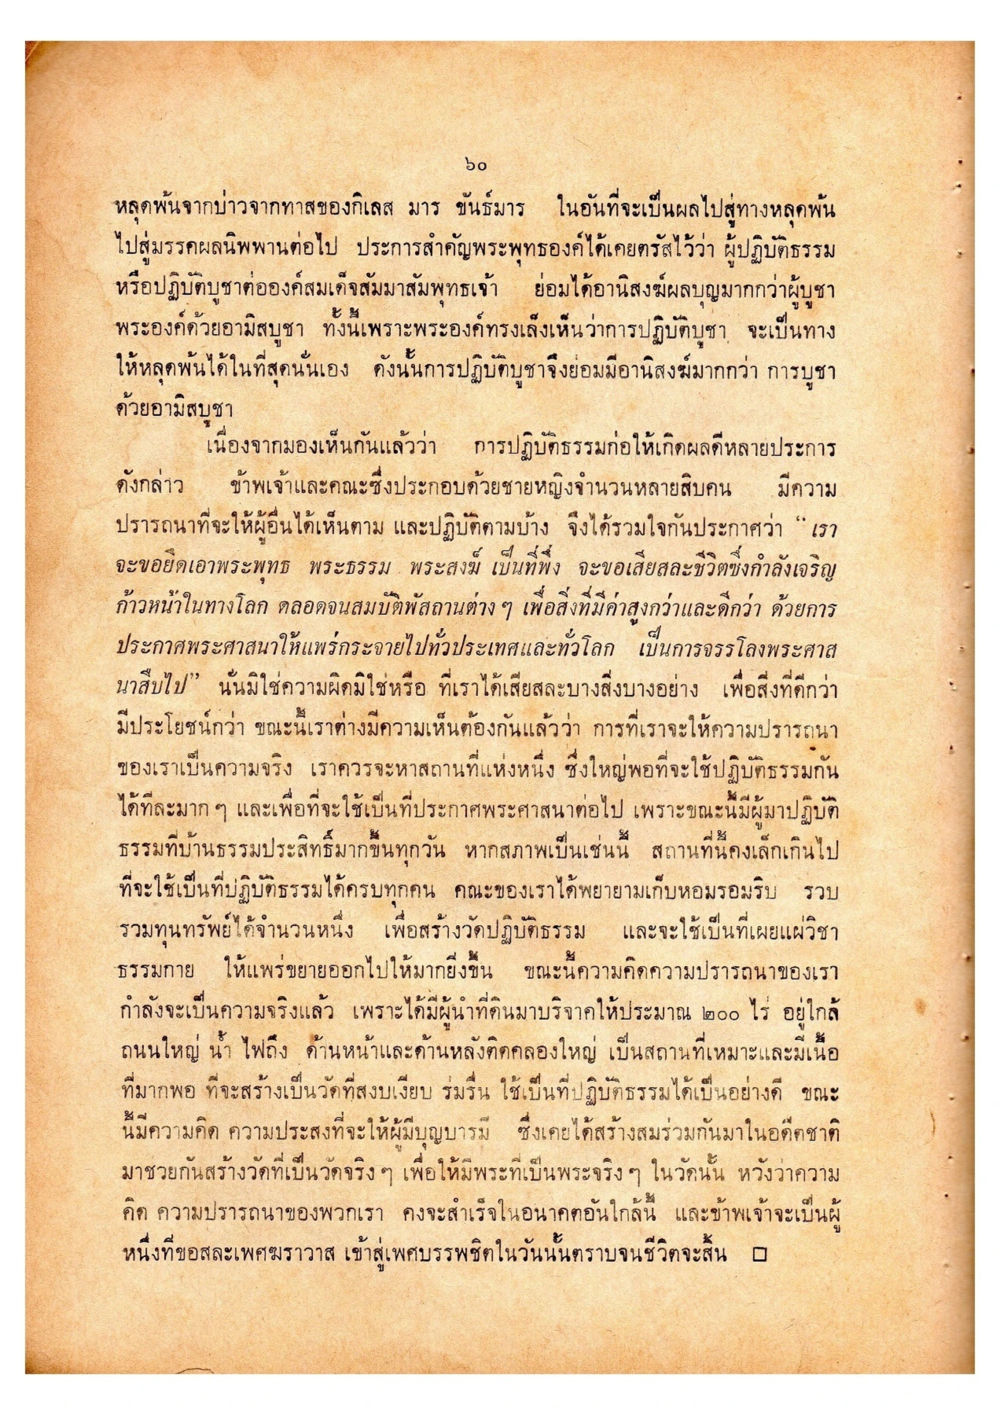 ๖๐
หลุดพ้นจากบ่าวจากทาสของกิเลส มาร ขันธ์มาร ในอันที่จะเป็นผลไปสู่ทางหลุดพ้น
ไปสู่มรรคผลนิพพานต่อไป ประการสำคัญพระพุทธองค์ได้เคยตรัสไว้ว่า ผู้ปฏิบัติธรรม
หรือปฏิบัติบูชาต่อองค์สมเด็จสัมมาสัมพุทธเจ้า ย่อมได้อานิสงฆ์ผลบุญมากกว่าผู้บูชา
พระองค์ด้วยอามิสบูชา ทั้งนี้เพราะพระองค์ทรงเล็งเห็นว่าการปฏิบัติบูชา จะเป็นทาง
ให้หลุดพ้นได้ในที่สุดนั่นเอง ดังนั้นการปฏิบัติบูชาจึงย่อมมีอานิสงฆ์มากกว่า การบูชา
ด้วยอามิสบูชา
เนื่องจากมองเห็นกันแล้วว่า การปฏิบัติธรรมก่อให้เกิดผลดีหลายประการ
ดังกล่าว ข้าพเจ้าและคณะซึ่งประกอบด้วยชายหญิงจำนวนหลายสิบคน มีความ
ปรารถนาที่จะให้ผู้อื่นได้เห็นตาม และปฏิบัติตามบ้าง จึงได้รวมใจกันประกาศว่า “เรา
จะขอยึดเอาพระพุทธ พระธรรม พระสงฆ์ เป็นที่พึ่ง จะขอเสียสละชีวิตซึ่งกำลังเจริญ
ก้าวหน้าในทางโลก ตลอดจนสมบัติพัสถานต่าง ๆ เพื่อสิ่งที่มีค่าสูงกว่าและดีกว่า ด้วยการ
ประกาศพระศาสนาให้แพร่กระจายไปทั่วประเทศและทั่วโลก เป็นการจรรโลงพระศาส
นาสืบไป” นั่นมิใช่ความผิดมิใช่หรือ ที่เราได้เสียสละบางสิ่งบางอย่าง เพื่อสิ่งที่ดีกว่า
มีประโยชน์กว่า ขณะนี้เราต่างมีความเห็นต้องกันแล้วว่า การที่เราจะให้ความปรารถนา
ของเราเป็นความจริง เราควรจะหาสถานที่แห่งหนึ่ง ซึ่งใหญ่พอที่จะใช้ปฏิบัติธรรมกัน
ได้ทีละมาก ๆ และเพื่อที่จะใช้เป็นที่ประกาศพระศาสนาต่อไป เพราะขณะนี้มีผู้มาปฏิบัติ
ธรรมที่บ้านธรรมประสิทธิ์มากขึ้นทุกวัน หากสภาพเป็นเช่นนี้ สถานที่นี้คงเล็กเกินไป
ที่จะใช้เป็นที่ปฏิบัติธรรมได้ครบทุกคน คณะของเราได้พยายามเก็บหอมรอมริบ รวบ
รวมทุนทรัพย์ได้จำนวนหนึ่ง เพื่อสร้างวัดปฏิบัติธรรม และจะใช้เป็นที่เผยแผ่วิชา
ธรรมกาย ให้แพร่ขยายออกไปให้มากยิ่งขึ้น ขณะนี้ความคิดความปรารถนาของเรา
กำลังจะเป็นความจริงแล้ว เพราะได้มีผู้นำที่ดินมาบริจาคให้ประมาณ ๒๐๐ ไร่ อยู่ใกล้
ถนนใหญ่ น้ำ ไฟถึง ด้านหน้าและด้านหลังติดคลองใหญ่ เป็นสถานที่เหมาะและมีเนื้อ
ที่มากพอ ที่จะสร้างเป็นวัดที่สงบเงียบ ร่มรื่น ใช้เป็นที่ปฏิบัติธรรมได้เป็นอย่างดี ขณะ
นี้มีความคิด ความประสงที่จะให้ผู้มีบุญบารมี ซึ่งเคยได้สร้างสมร่วมกันมาในอดีตชาติ
มาชวยกันสร้างวัดที่เป็นวัดจริง ๆ เพื่อให้มีพระที่เป็นพระจริง ๆ ในวัดนั้น หวังว่าความ
คิด ความปรารถนาของพวกเรา คงจะสำเร็จในอนาคตอันใกล้นี้ และข้าพเจ้าจะเป็นผู้
หนึ่งที่ขอสละเพศฆราวาส เข้าสู่เพศบรรพชิตในวันนั้นตราบจนชีวิตจะสิ้น □